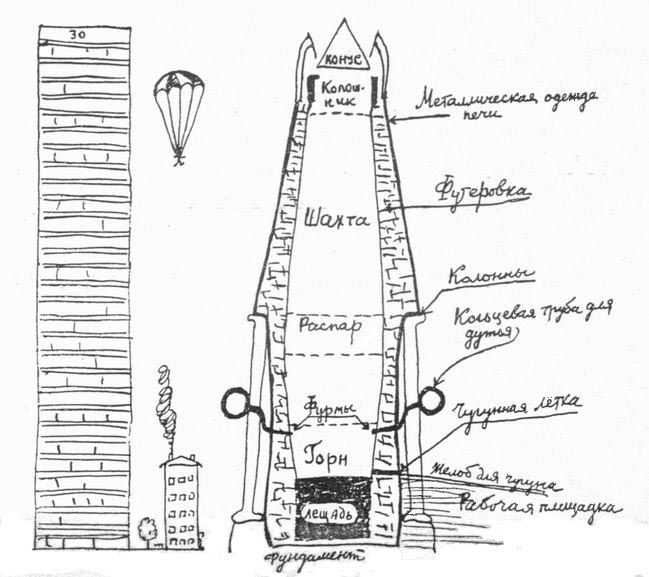 30
конус
Колош-
ник
Металлическая одежда
печи
Футеровка
Шахта
Колонны
Кольцевая труба для
дутья
Распар
Фурмы
Чугунная летка
Горн
Желоб для чугуна
Рабочая площадка
лещадь
Фундамент